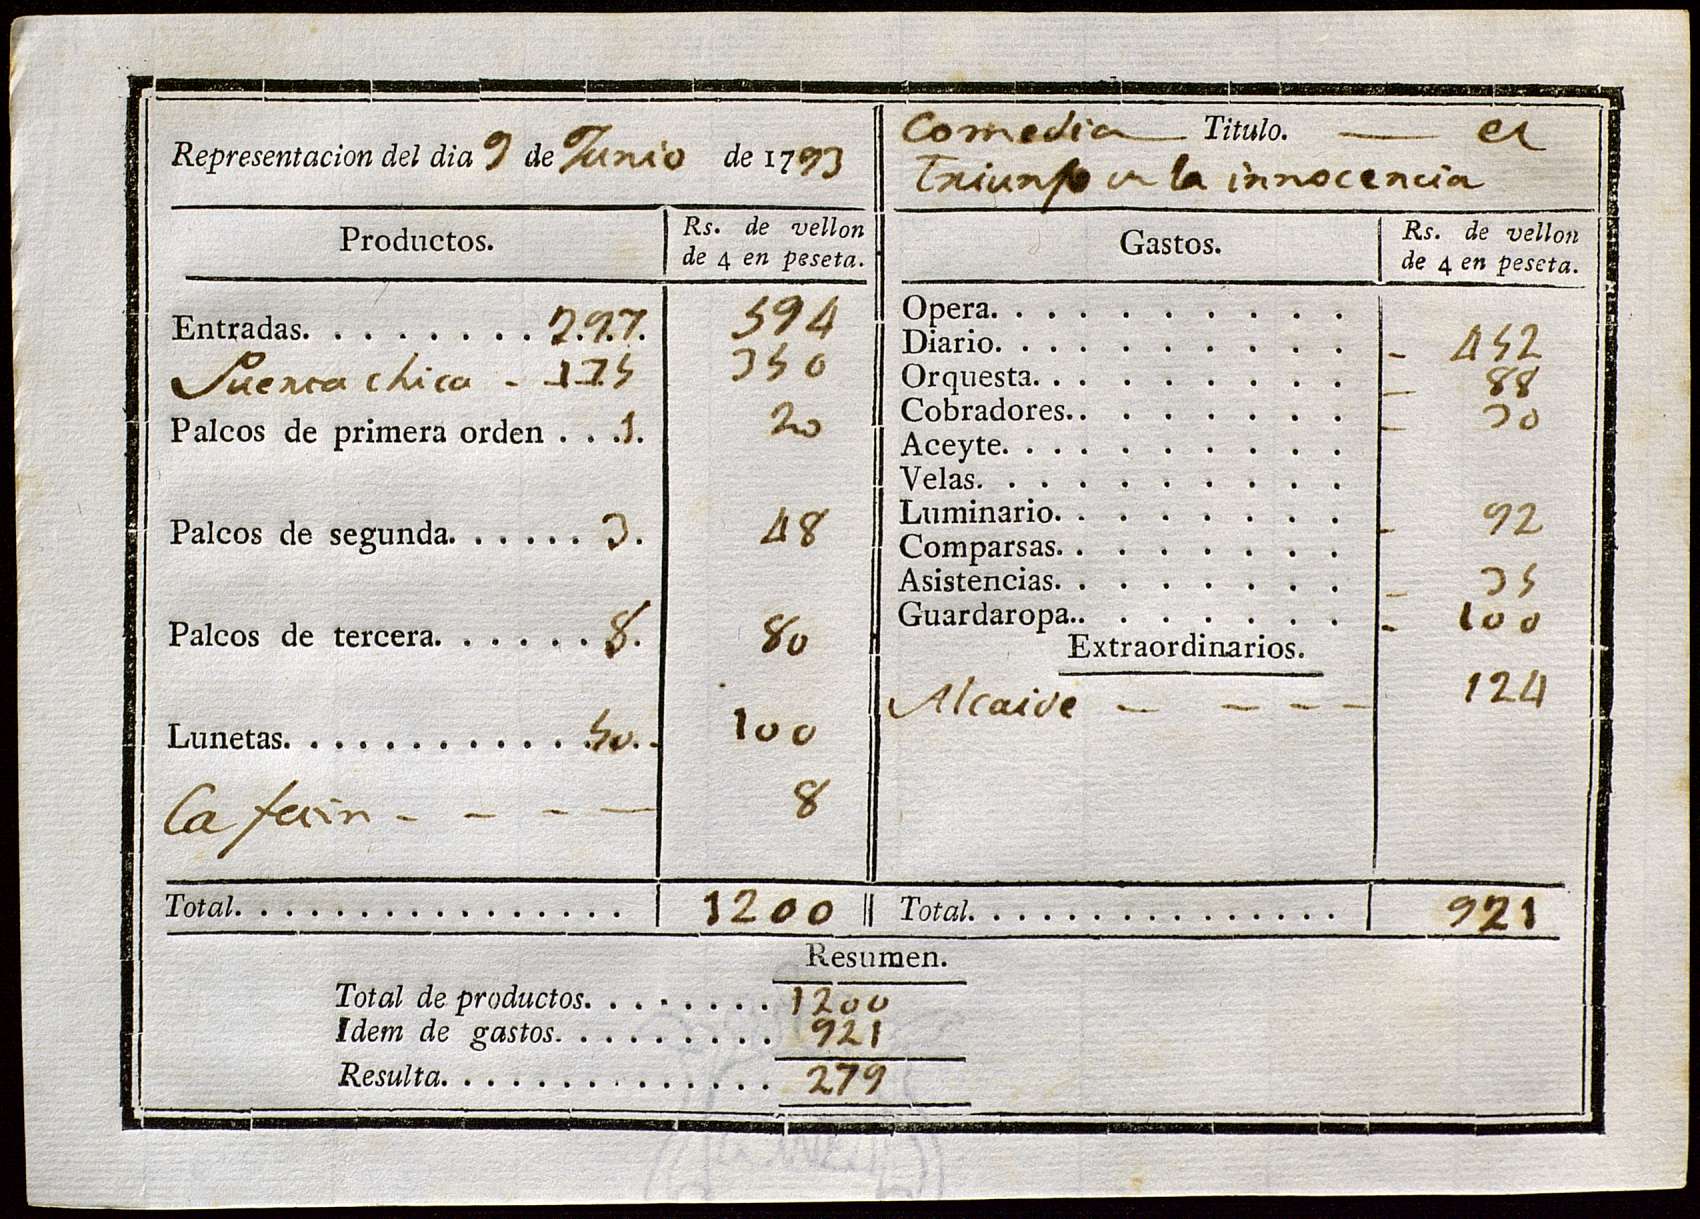 Representacion del dia 9 de Junio de 1793
Comedia Titulo. el
Triunfo de la innocencia
Productos.
Rs. de vellon
de 4 en peseta.
Entradas. 297. 594
Puerta chica - 175 350
Palcos de primera orden . . .1. 20
Palcos de segunda. 3. 48
Palcos de tercera. 8. 80
Lunetas. 50. 100
Cafetin - - - - 8
Total. 1200
Gastos.
Rs. de vellon
de 4 en peseta.
Opera.
Diario. - 452
Orquesta. - 88
Cobradores. - 30
Aceyte.
Velas.
Luminario. - 92
Comparsas.
Asistencias. - 35
Guardaropa. - 100
Extraordinarios.
Alcaide - - - - 124
Total. 921
Resumen.
Total de productos. 1200
Idem de gastos. 921
Resulta. 279